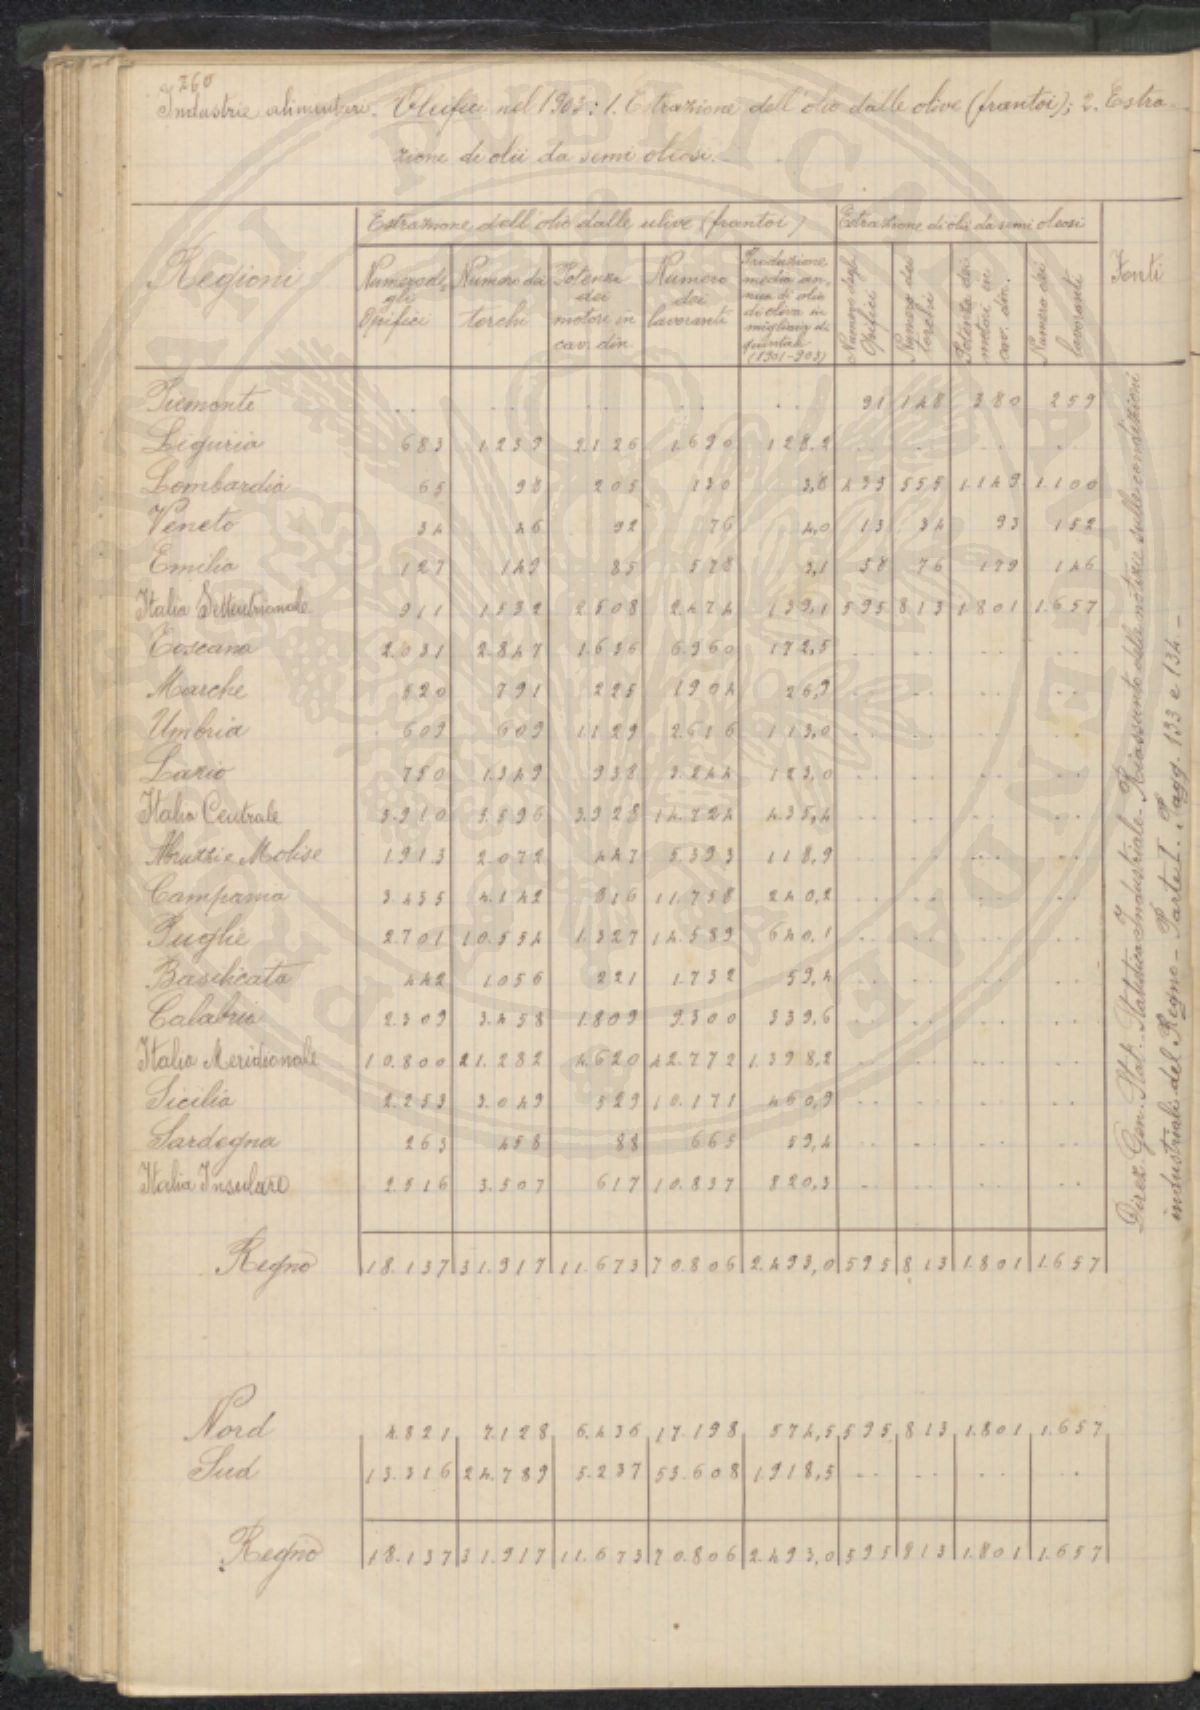 260
Industrie alimentari. Oleifici nel 1903: 1. Estrazione dell'olio dalle olive (frantoi); 2. Estra-
zione di olii da semi oleosi.
Regioni | Estrazione dell'olio dalle ulive (frantoi) | Estrazione di olii da semi oleosi | Fonti
Numero degli Opifici | Numero dei torchi | Potenza dei motori in cav. din. | Numero dei lavoranti | Produzione media annua di olio di oliva in migliaia di quintali (1901-903) | Numero degli Opifici | Numero dei torchi | Potenza dei motori in cav. din. | Numero dei lavoranti
Piemonte .. .. .. .. .. 91 148 380 259
Liguria 683 1239 2126 1.690 128,2 .. .. .. ..
Lombardia 65 98 205 130 3,8 433 555 1.149 1.100
Veneto 34 46 92 76 4,0 13 34 93 152
Emilia 127 149 85 578 3,1 58 76 179 146
Italia Settentrionale 911 1.532 2.508 2.474 139,1 595 813 1.801 1.657
Toscana 2.031 2.847 1.636 6.960 172,5 .. .. .. ..
Marche 520 791 225 1904 26,9 .. .. .. ..
Umbria 609 609 1129 2.616 113,0 .. .. .. ..
Lazio 750 1.349 938 3.244 123,0 .. .. .. ..
Italia Centrale 3.910 5.596 3.928 14.724 435,4 .. .. .. ..
Abruzzi e Molise 1.913 2.072 447 5.393 118,9 .. .. .. ..
Campania 3.435 4.142 816 11.758 240,2 .. .. .. ..
Puglie 2.701 10.554 1.327 14.589 640,1 .. .. .. ..
Basilicata 442 1056 221 1.732 59,4 .. .. .. ..
Calabrie 2.309 3.458 1.809 9.300 339,6 .. .. .. ..
Italia Meridionale 10.800 21.282 4.620 42.772 1.398,2 .. .. .. ..
Sicilia 2.253 3.049 529 10.171 460,9 .. .. .. ..
Sardegna 263 458 88 665 59,4 .. .. .. ..
Italia Insulare 2.516 3.507 617 10.837 820,3 .. .. .. ..
Regno 18.137 31.917 11.673 70.806 2.493,0 595 813 1.801 1.657
Nord 4.821 7.128 6.436 17.198 574,5 595 813 1.801 1.657
Sud 13.316 24.789 5.237 53.608 1.918,5 .. .. .. ..
Regno 18.137 31.917 11.673 70.806 2.493,0 595 813 1.801 1.657
Direz. Gen. Stat.: Statistica Industriale. Riassunto delle notizie sulle condizioni
industriali del Regno - Parte I. Pagg. 133 e 134. -